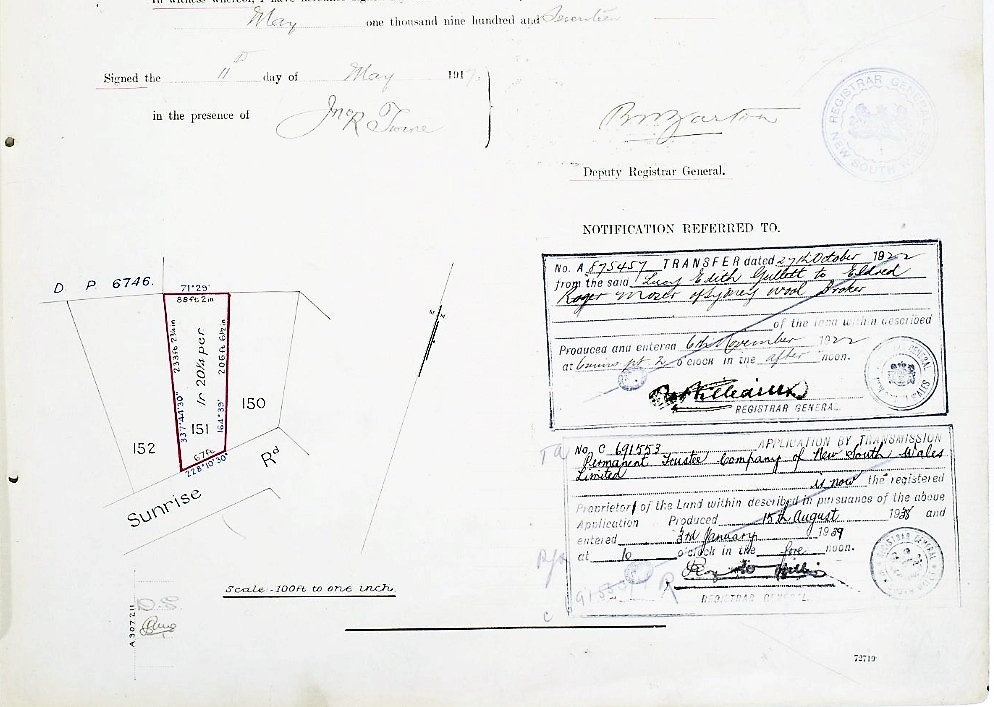 In witness whereof, I have hereunto signed my
May one thousand nine hundred and Seventeen
Signed the 11th day of May 1917
in the presence of
Deputy Registrar General.
REGISTRAR GENERAL
NEW SOUTH
NOTIFICATION REFERRED TO.
No. A 875457 TRANSFER dated 27th October 1922
from the said Lucy Edith Gullott to Eldred
Roger Moser of Sydney Wool Broker
of the land within described
Produced and entered 6th November 1922
at 6 mins pt 2 o'clock in the after noon.
REGISTRAR GENERAL
No. C 691553 APPLICATION BY TRANSMISSION
Permanent Trustee Company of New South Wales
Limited
is now the registered
Proprietor of the Land within described in pursuance of the above
Application Produced 15th August 1938 and
entered 3rd January 1939
at 10 o'clock in the fore noon.
REGISTRAR GENERAL
D P 6746.
71°29'
88ft 2in
233ft 2¾in
1r 20¼ per
206ft 6½in
337°44'30"
164°39'
151
150
152
67ft
228°10'30"
Sunrise Rd
Scale - 100ft to one inch.
A 307211
D.S.
72719